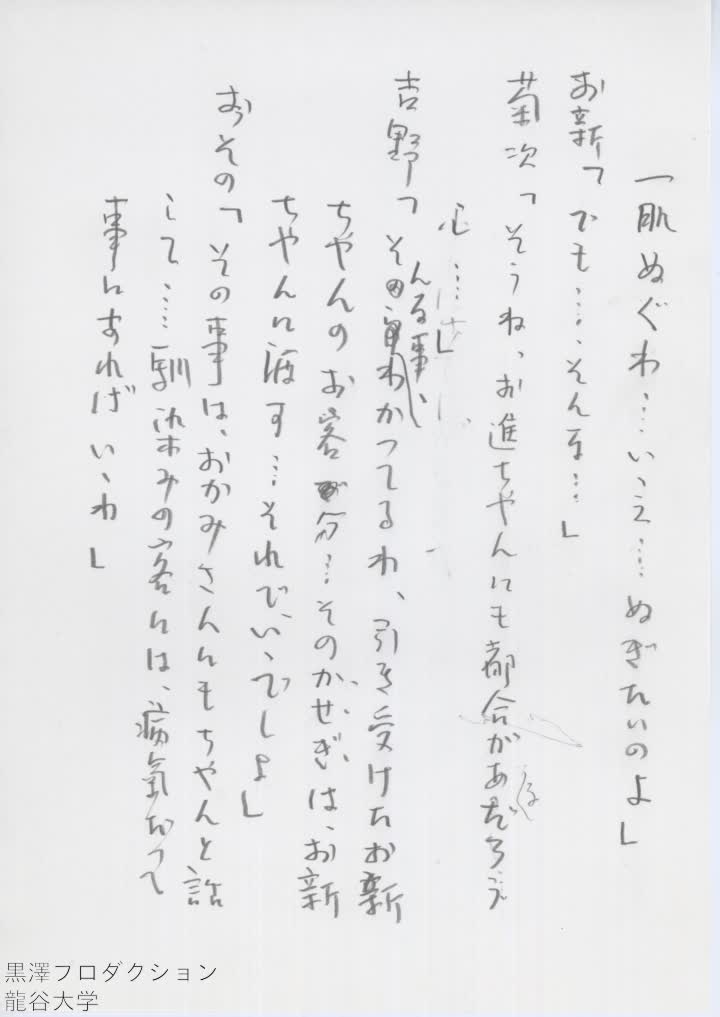 一肌ぬぐわ…いゝえ……ぬぎたいのよ」
お新「でも……そんな…」
菊次「そうね、お進ちやんにも都合があ
心…」
吉野「そんな事、わかつてるわ、引き受けたお新
ちやんのお客の分…そのかせぎは、お新
ちやんに渡す…それでいゝでしよ」
おその「その事は、おかみさんにもちやんと話
して……馴染みの客には、病気だつて
事にすればいゝわ」
黒澤プロダクション
龍谷大学